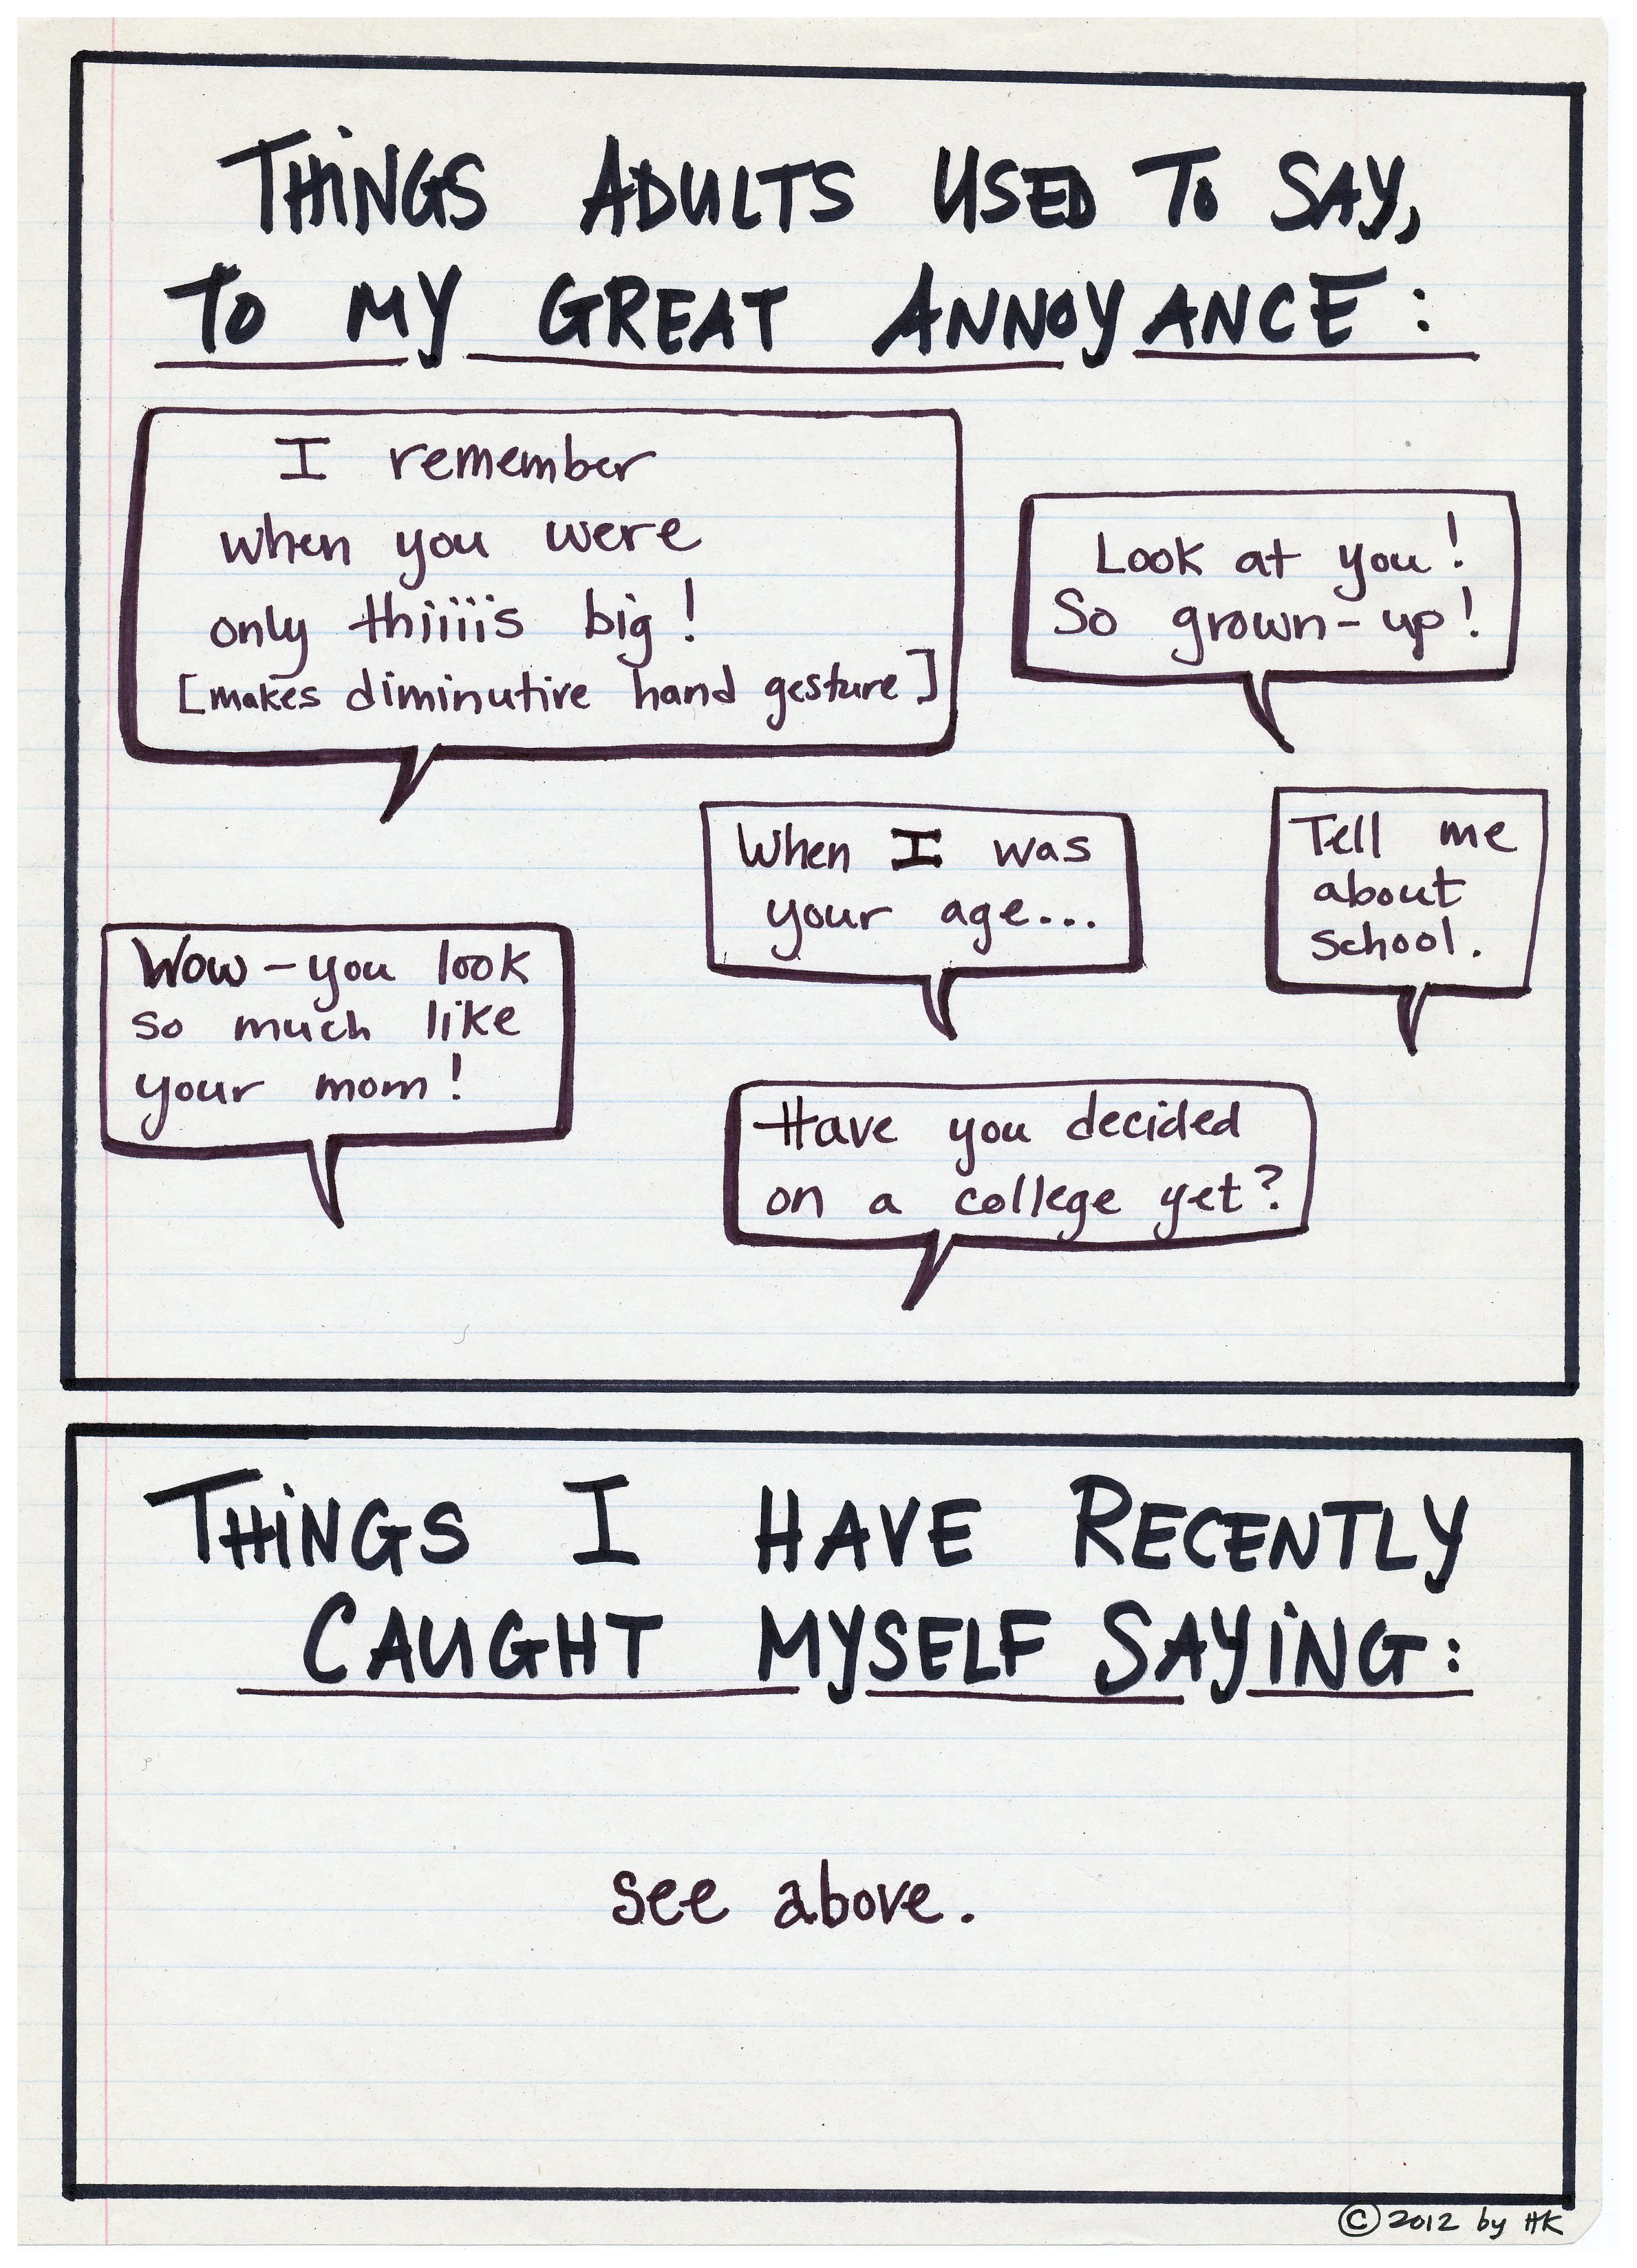 THINGS ADULTS USED TO SAY,
TO MY GREAT ANNOYANCE:
I remember
when you were
only thiiiis big!
[makes diminutive hand gesture]
Look at you!
So grown-up!
When I was
your age...
Tell me
about
school.
Wow - you look
so much like
your mom!
Have you decided
on a college yet?
THINGS I HAVE RECENTLY
CAUGHT MYSELF SAYING:
see above.
© 2012 by HK